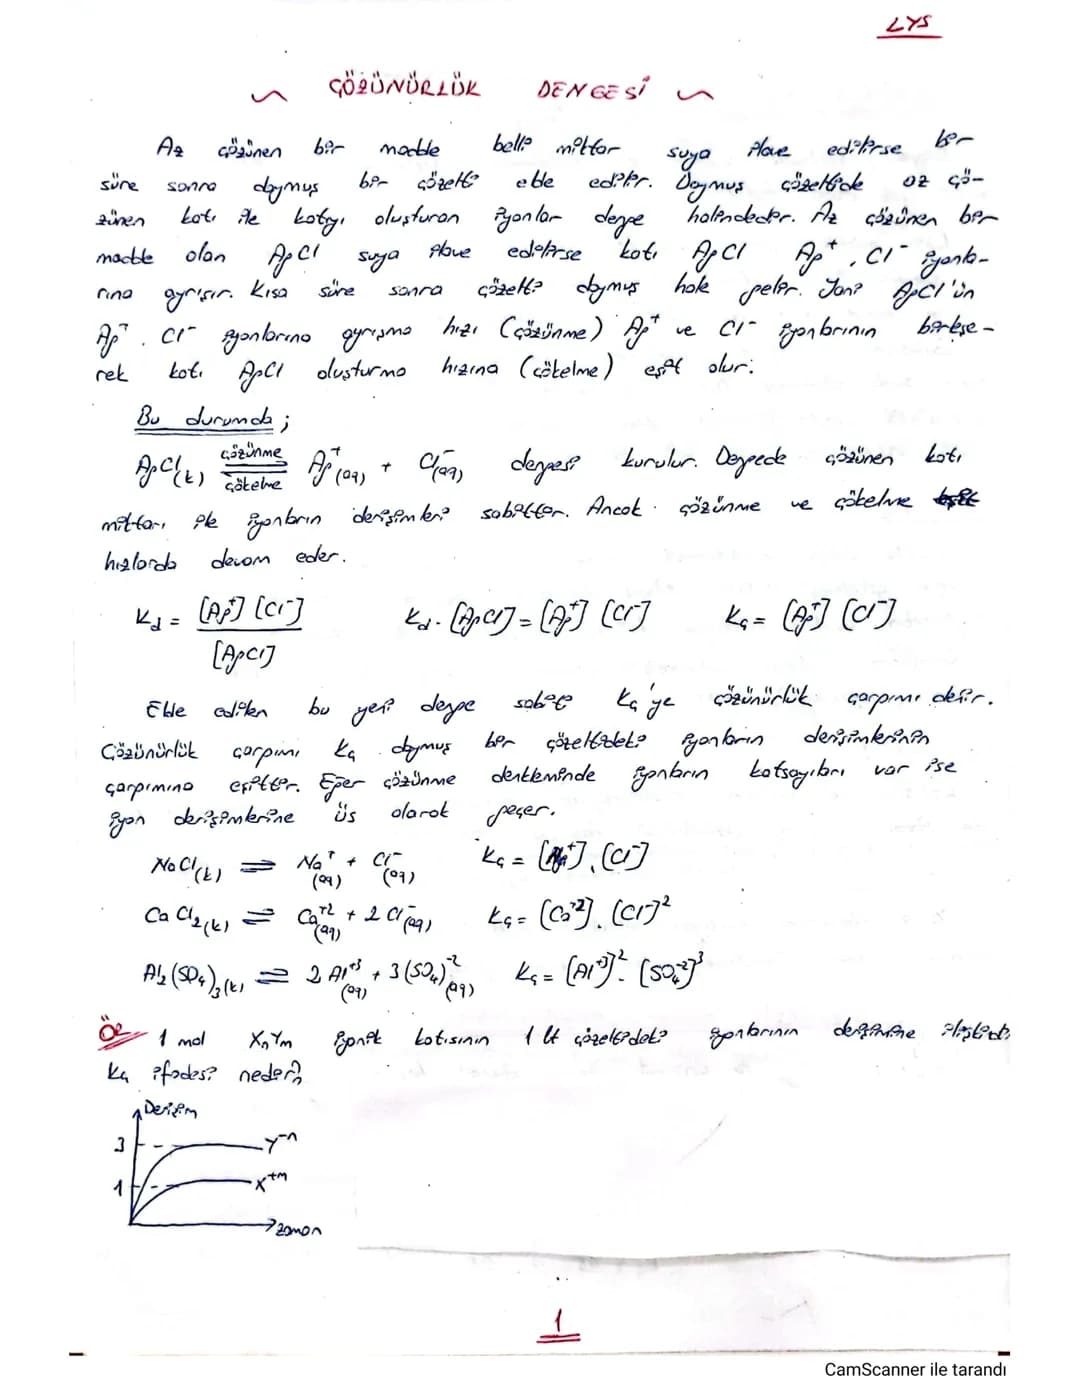 LYS
~ ÇÖZÜNÜRLÜK DENGESİ ~
Az çözünen bir madde belli miktar suya ilave edilirse bir
süre sonra doymuş bir çözelti elde edilir. Doymuş çözeltide az çö-
zünen katı ile katıyı oluşturan iyonlar denge halindedir. Az çözünen bir
madde olan AgCl suya ilave edilirse katı AgCl Ag⁺, Cl⁻ iyonla-
rına ayrışır. Kısa süre sonra çözelti doymuş hale gelir. Yani AgCl'ün
Ag⁺, Cl⁻ iyonlarına ayrışma hızı (çözünme) Ag⁺ ve Cl⁻ iyonlarının birleşe-
rek katı AgCl oluşturma hızına (çökelme) eşit olur.
Bu durumda;
AgCl(k) ⇌ Ag⁺(aq) + Cl⁻(aq) dengesi kurulur. Dengede çözünen katı
çözünme
çökelme
miktarı ile iyonların derişimleri sabittir. Ancak çözünme ve çökelme eşit
hızlarda devam eder.
Kd = [Ag⁺] [Cl⁻] / [AgCl] Kd · [AgCl] = [Ag⁺] [Cl⁻] Kç = [Ag⁺] [Cl⁻]
Elde edilen bu yeni denge sabiti Kç'ye çözünürlük çarpımı denir.
Çözünürlük çarpımı Kç doymuş bir çözeltideki iyonların derişimlerinin
çarpımına eşittir. Eğer çözünme denkleminde iyonların katsayıları var ise
iyon derişimlerine üs olarak geçer.
NaCl(k) ⇌ Na⁺(aq) + Cl⁻(aq) Kç = [Na⁺].[Cl⁻]
CaCl₂(k) ⇌ Ca⁺²(aq) + 2Cl⁻(aq) Kç = [Ca⁺²].[Cl⁻]²
Al₂(SO₄)₃(k) ⇌ 2Al⁺³(aq) + 3(SO₄)⁻²(aq) Kç = [Al⁺³]².[SO₄⁻²]³
Ör 1 mol XnYm iyonik katısının 1 lt çözeltideki iyonlarının derişimine
Kç ifadesi nedir?
Derişim
3 Y⁻ⁿ
1 X⁺ᵐ
zaman
1
CamScanner ile tarandı